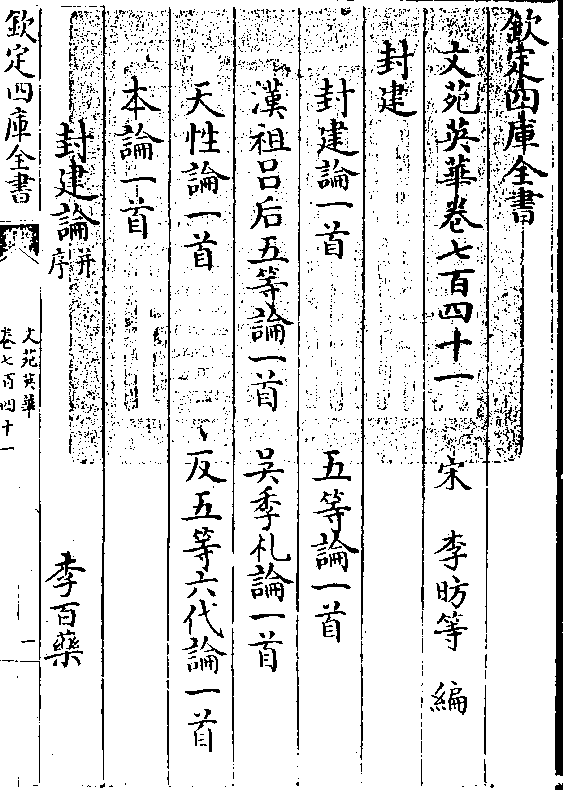 欽定四庫全書
文苑英華卷七百四十一
宋 李昉等 編
封建
封建論一首 五等論一首
漢祖呂后五等論一首 吳季札論一首
天性論一首 反五等六代論一首
本論一首
封建論并序 李百藥
欽定四庫全書
文苑英華
卷七百四十一
一